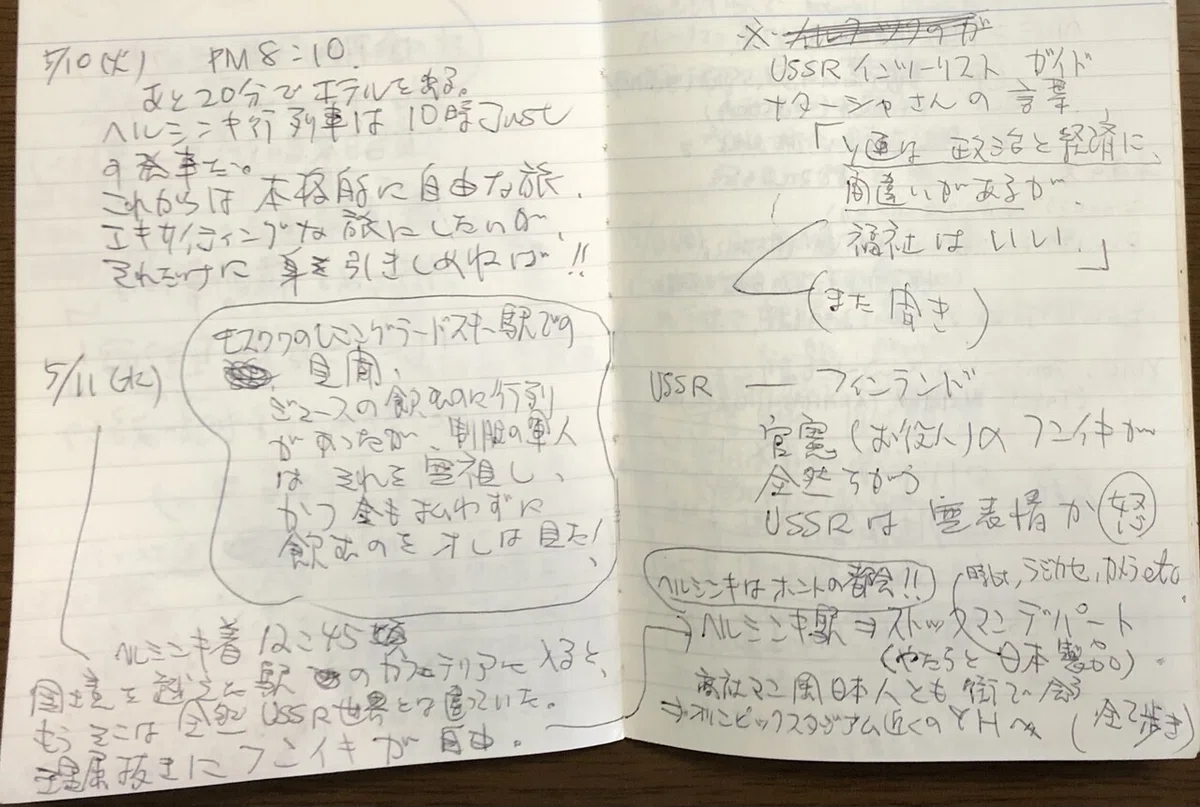 5/10(火) PM8:10.
あと20分でホテルを出る。
ヘルシンキ行列車は10時Just
の発車だ。
これからは本格的に自由な旅.
エキサイティングな旅にしたいが、
それだけに身を引きしめねば!!
5/11(水)
モスクワのレニングラードスキー駅での
見聞、
ジュースの飲むのに行列
があったが、制服の軍人
はそれを無視し、
かつ金も払わずに
飲むのをオレは見た!
ヘルシンキ着12:45頃
国境を越えた駅のカフェテリアーに入ると、
もうそこは全然USSR世界とは違っていた。
理屈抜きにフンイキが自由。
※
USSRインツーリスト ガイド
ナターシャさんの言葉、
「ソ連は政治と経済に、
間違いがあるが、
福祉はいい.」
(また聞き)
USSR ― フィンランド
官憲(お役人)のフンイキが
全然ちがう
USSRは無表情か怒
ヘルシンキはホントの都会!!
時計,ラジカセ,カメラetc
→ヘルシンキ駅⇒ストックマンデパート
(やたらと日本製品).
商社マン風日本人とも街で会う
⇒オリンピックスタジアム近くのYHへ (全て歩き)